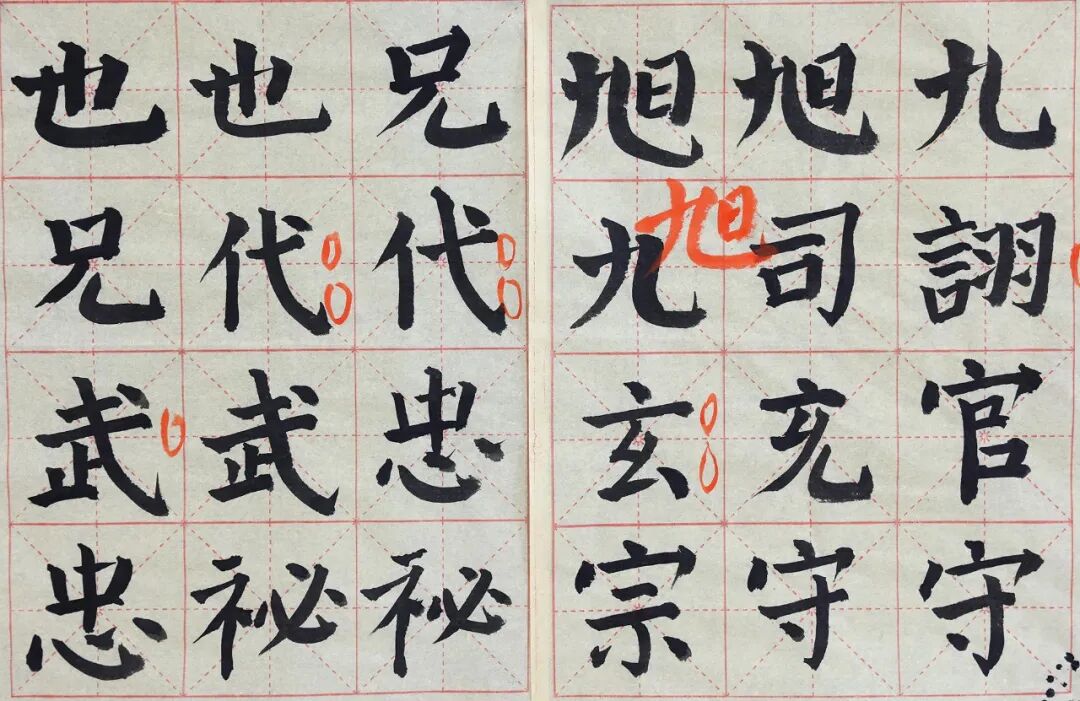 九詡官守
旭司充守
旭九玄宗
旭
兄代忠祕
也代武祕
也兄武忠